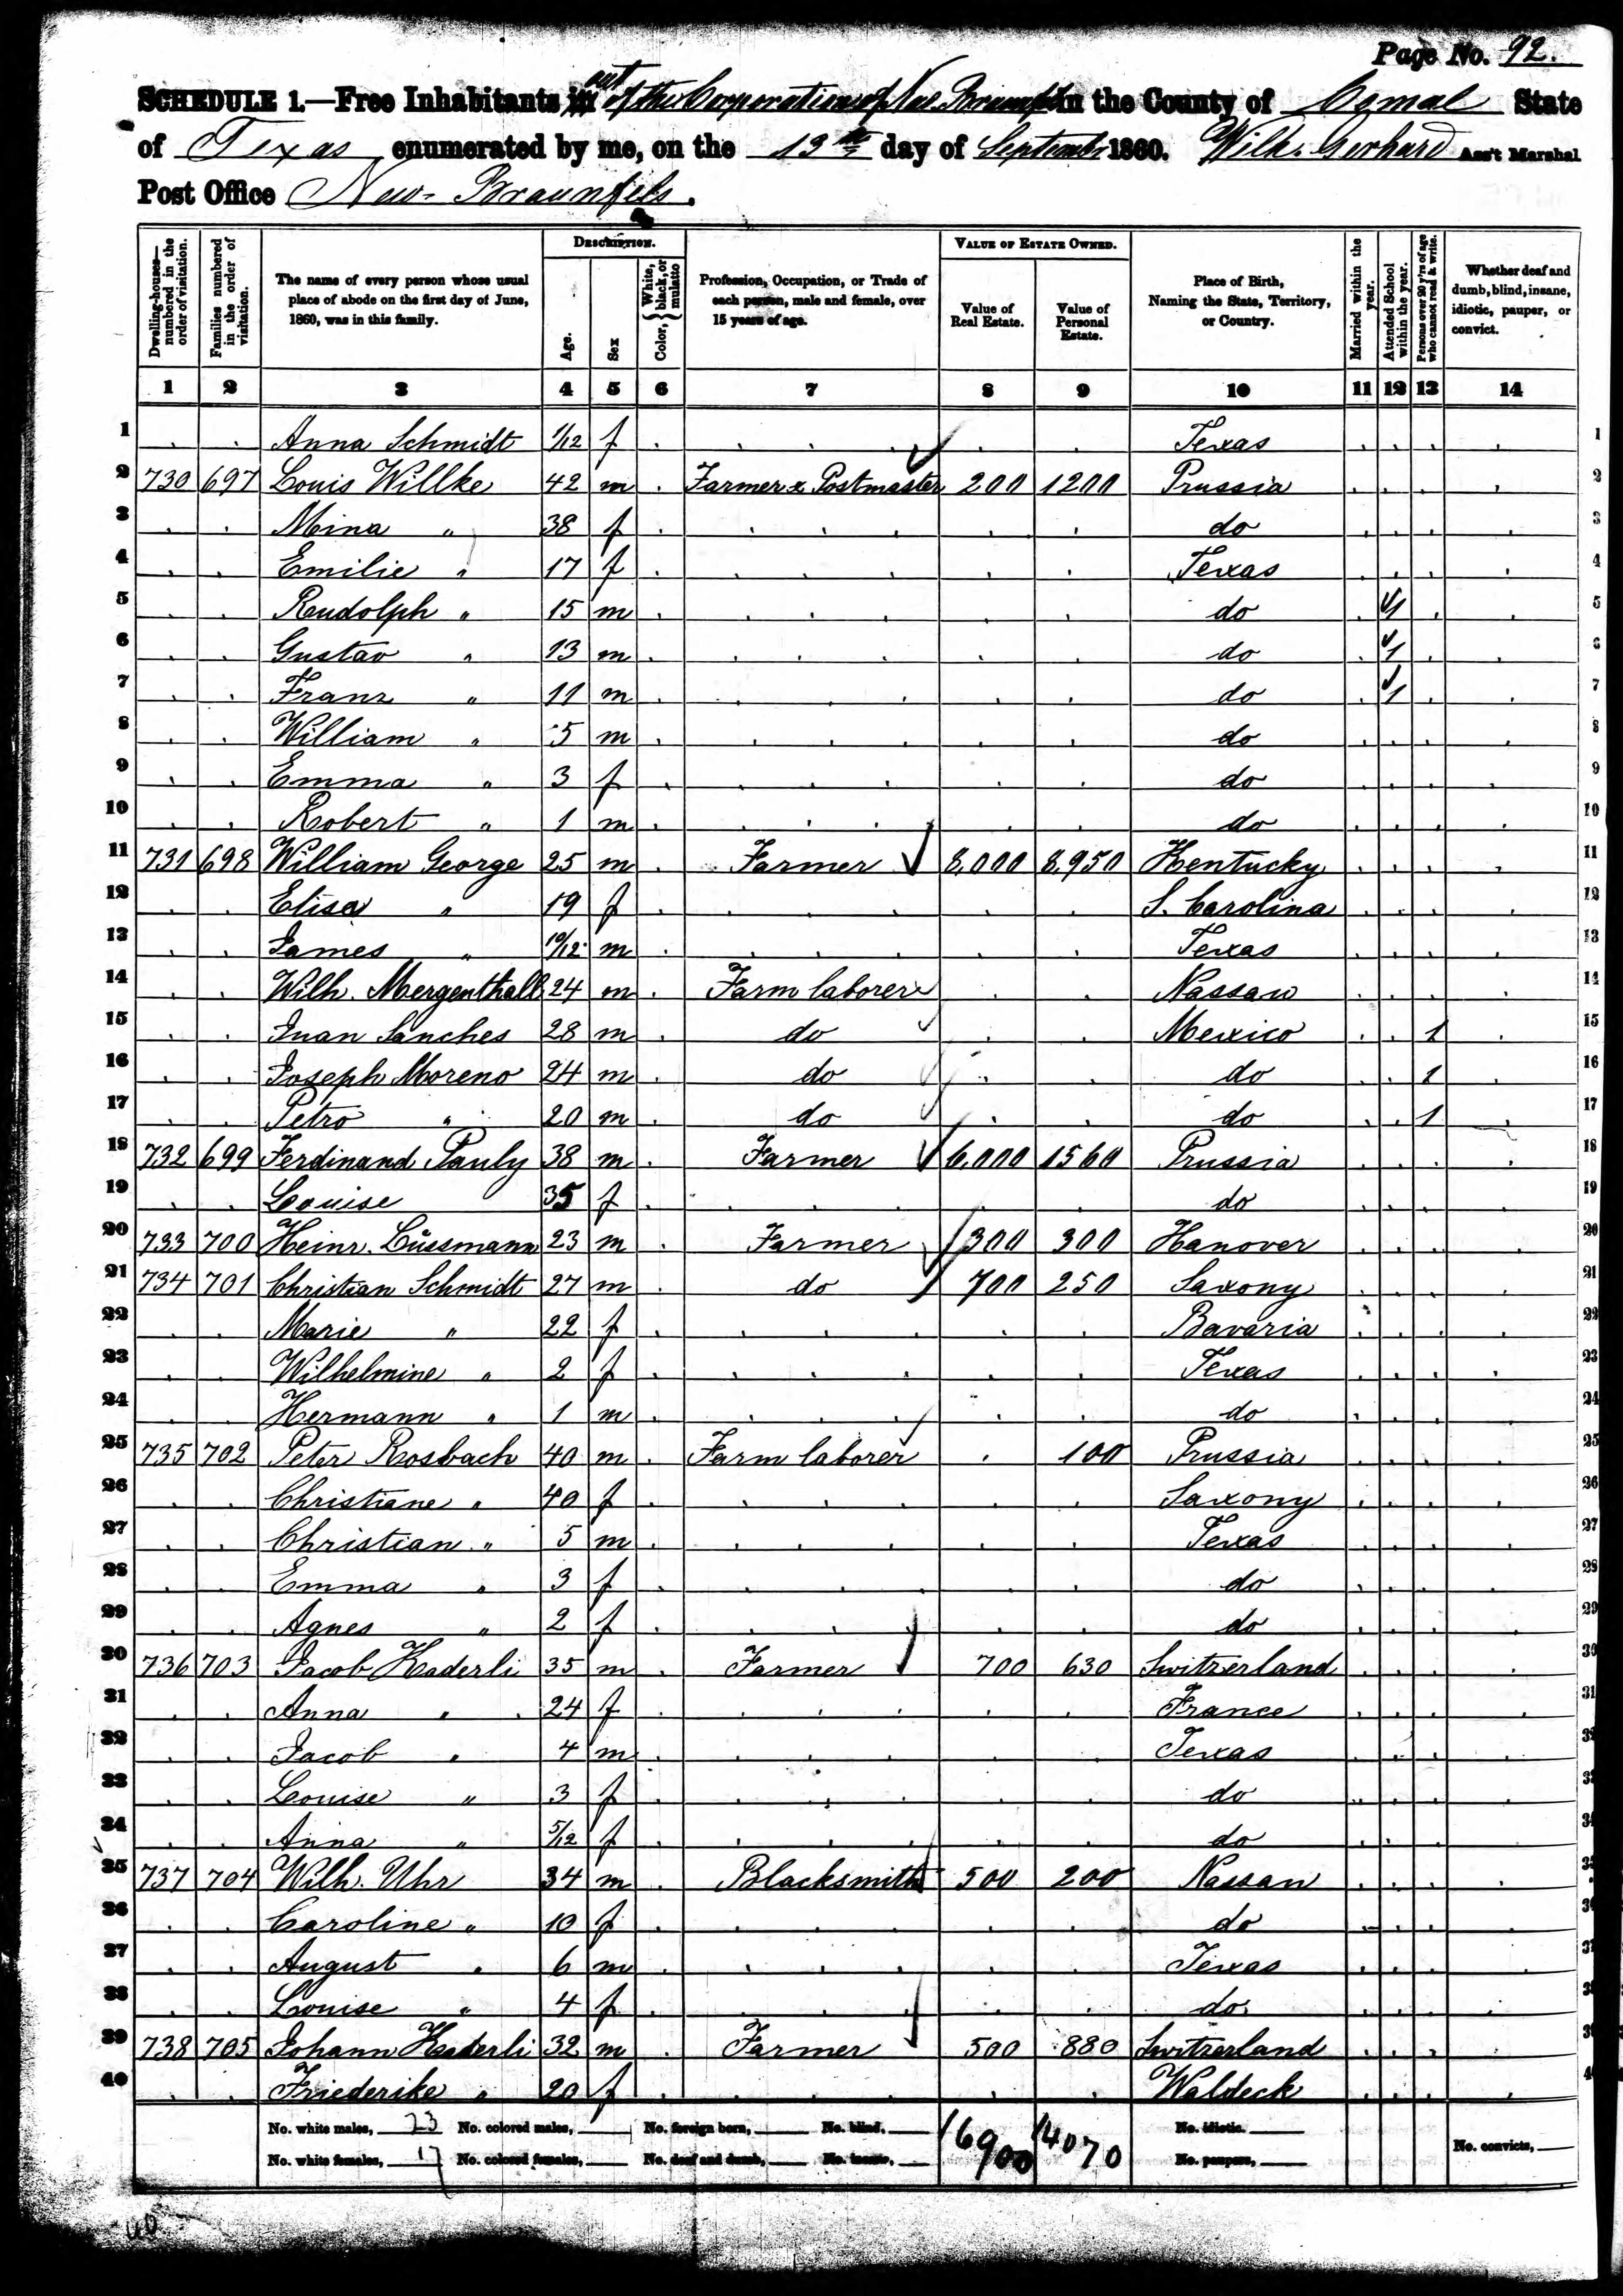 Page No. 92.
SCHEDULE 1.—Free Inhabitants in out of the Corporation of New Braunfels in the County of Comal State
of Texas enumerated by me, on the 13th day of September 1860. Wilh. Gerhard Ass't Marshal
Post Office New-Braunfels.
Dwelling-houses—numbered in the order of visitation.
Families numbered in the order of visitation.
The name of every person whose usual place of abode on the first day of June, 1860, was in this family.
DESCRIPTION.
Age.
Sex
Color, { White, black, or mulatto
Profession, Occupation, or Trade of each person, male and female, over 15 years of age.
VALUE OF ESTATE OWNED.
Value of Real Estate.
Value of Personal Estate.
Place of Birth, Naming the State, Territory, or Country.
Married within the year.
Attended School within the year.
Persons over 20 y'rs of age who cannot read & write.
Whether deaf and dumb, blind, insane, idiotic, pauper, or convict.
1 2 3 4 5 6 7 8 9 10 11 12 13 14
1 Anna Schmidt 1/12 f Texas 1
2 730 697 Louis Willke 42 m Farmer & Postmaster 200 1200 Prussia 2
3 Mina " 38 f do 3
4 Emilie " 17 f Texas 4
5 Rudolph " 15 m do 1 5
6 Gustav " 13 m do 1 6
7 Franz " 11 m do 1 7
8 William " 5 m do 8
9 Emma " 3 f do 9
10 Robert " 1 m do 10
11 731 698 William George 25 m Farmer 8,000 8,950 Kentucky 11
12 Elisa " 19 f S. Carolina 12
13 James " 10/12 m Texas 13
14 Wilh. Mergenthall 24 m Farm laborer Nassau 14
15 Juan Sanches 28 m do Mexico 1 15
16 Joseph Moreno 24 m do do 1 16
17 Petro " 20 m do do 1 17
18 732 699 Ferdinand Pauly 38 m Farmer 6,000 1560 Prussia 18
19 Louise 35 f do 19
20 733 700 Heinr. Lüssmann 23 m Farmer 300 300 Hanover 20
21 734 701 Christian Schmidt 27 m do 700 250 Saxony 21
22 Marie " 22 f Bavaria 22
23 Wilhelmine " 2 f Texas 23
24 Hermann " 1 m do 24
25 735 702 Peter Rosbach 40 m Farm laborer 100 Prussia 25
26 Christiane " 40 f Saxony 26
27 Christian " 5 m Texas 27
28 Emma " 3 f do 28
29 Agnes " 2 f do 29
30 736 703 Jacob Haderli 35 m Farmer 700 630 Switzerland 30
31 Anna " 24 f France 31
32 Jacob " 4 m Texas
33 Louise " 3 f do
34 Anna " 5/12 f do
35 737 704 Wilh. Uhr 34 m Blacksmith 500 200 Nassau
36 Caroline " 10 f do
37 August " 6 m Texas
38 Louise " 4 f do
39 738 705 Johann Haderli 32 m Farmer 500 880 Switzerland
40 Friederike " 20 f Waldeck
No. white males, 23 No. colored males, No. foreign born, No. blind, 16900 14070 No. idiotic.
No. white females, 17 No. colored females, No. deaf and dumb, No. insane, No. paupers, No. convicts,